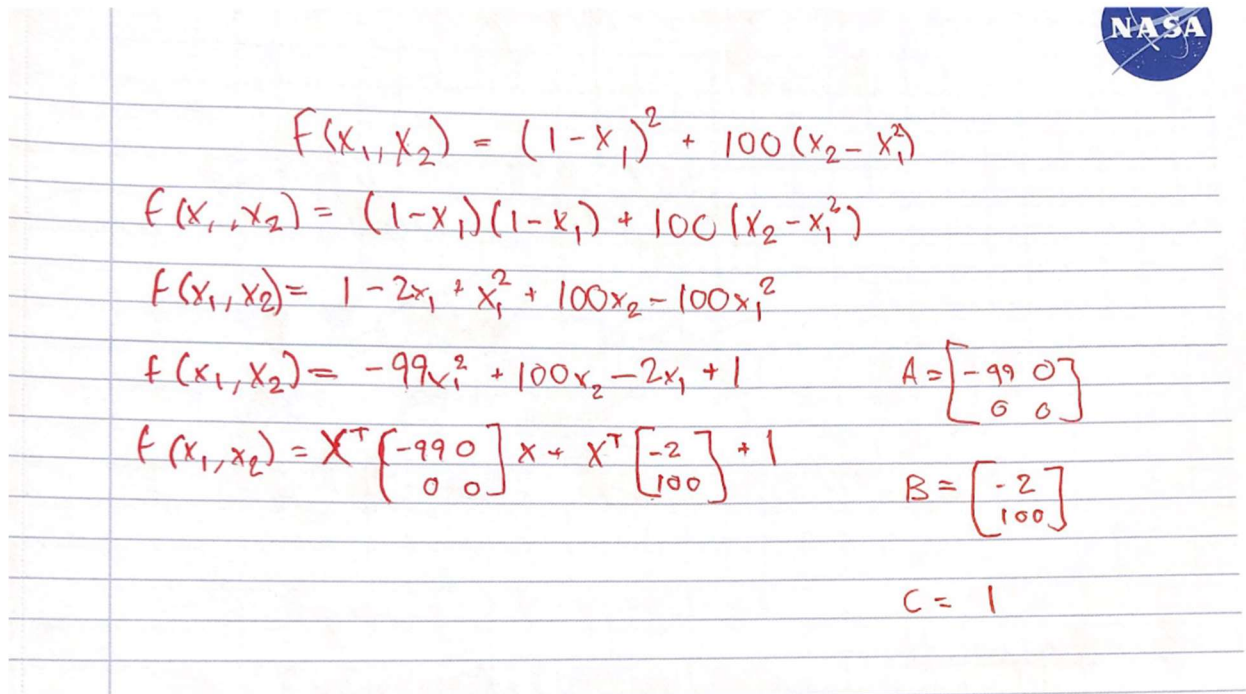 NASA
F(x₁, x₂) = (1-x₁)² + 100(x₂-x₁²)
f(x₁, x₂) = (1-x₁)(1-x₁) + 100(x₂-x₁²)
f(x₁, x₂) = 1-2x₁ + x₁² + 100x₂-100x₁²
f(x₁, x₂) = -99x₁² + 100x₂-2x₁ + 1
A = [-99 0
0 0]
f(x₁, x₂) = Xᵀ [-99 0
0 0] x + xᵀ [-2
100] + 1
B = [-2
100]
C = 1